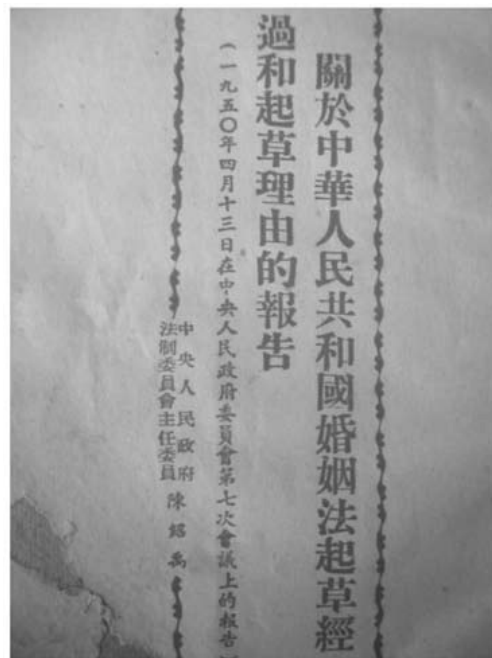 關於中華人民共和國婚姻法起草經
過和起草理由的報告
(一九五〇年四月十三日在中央人民政府委員會第七次會議上的報告)
中央人民政府
法制委員會主任委員
陳紹禹